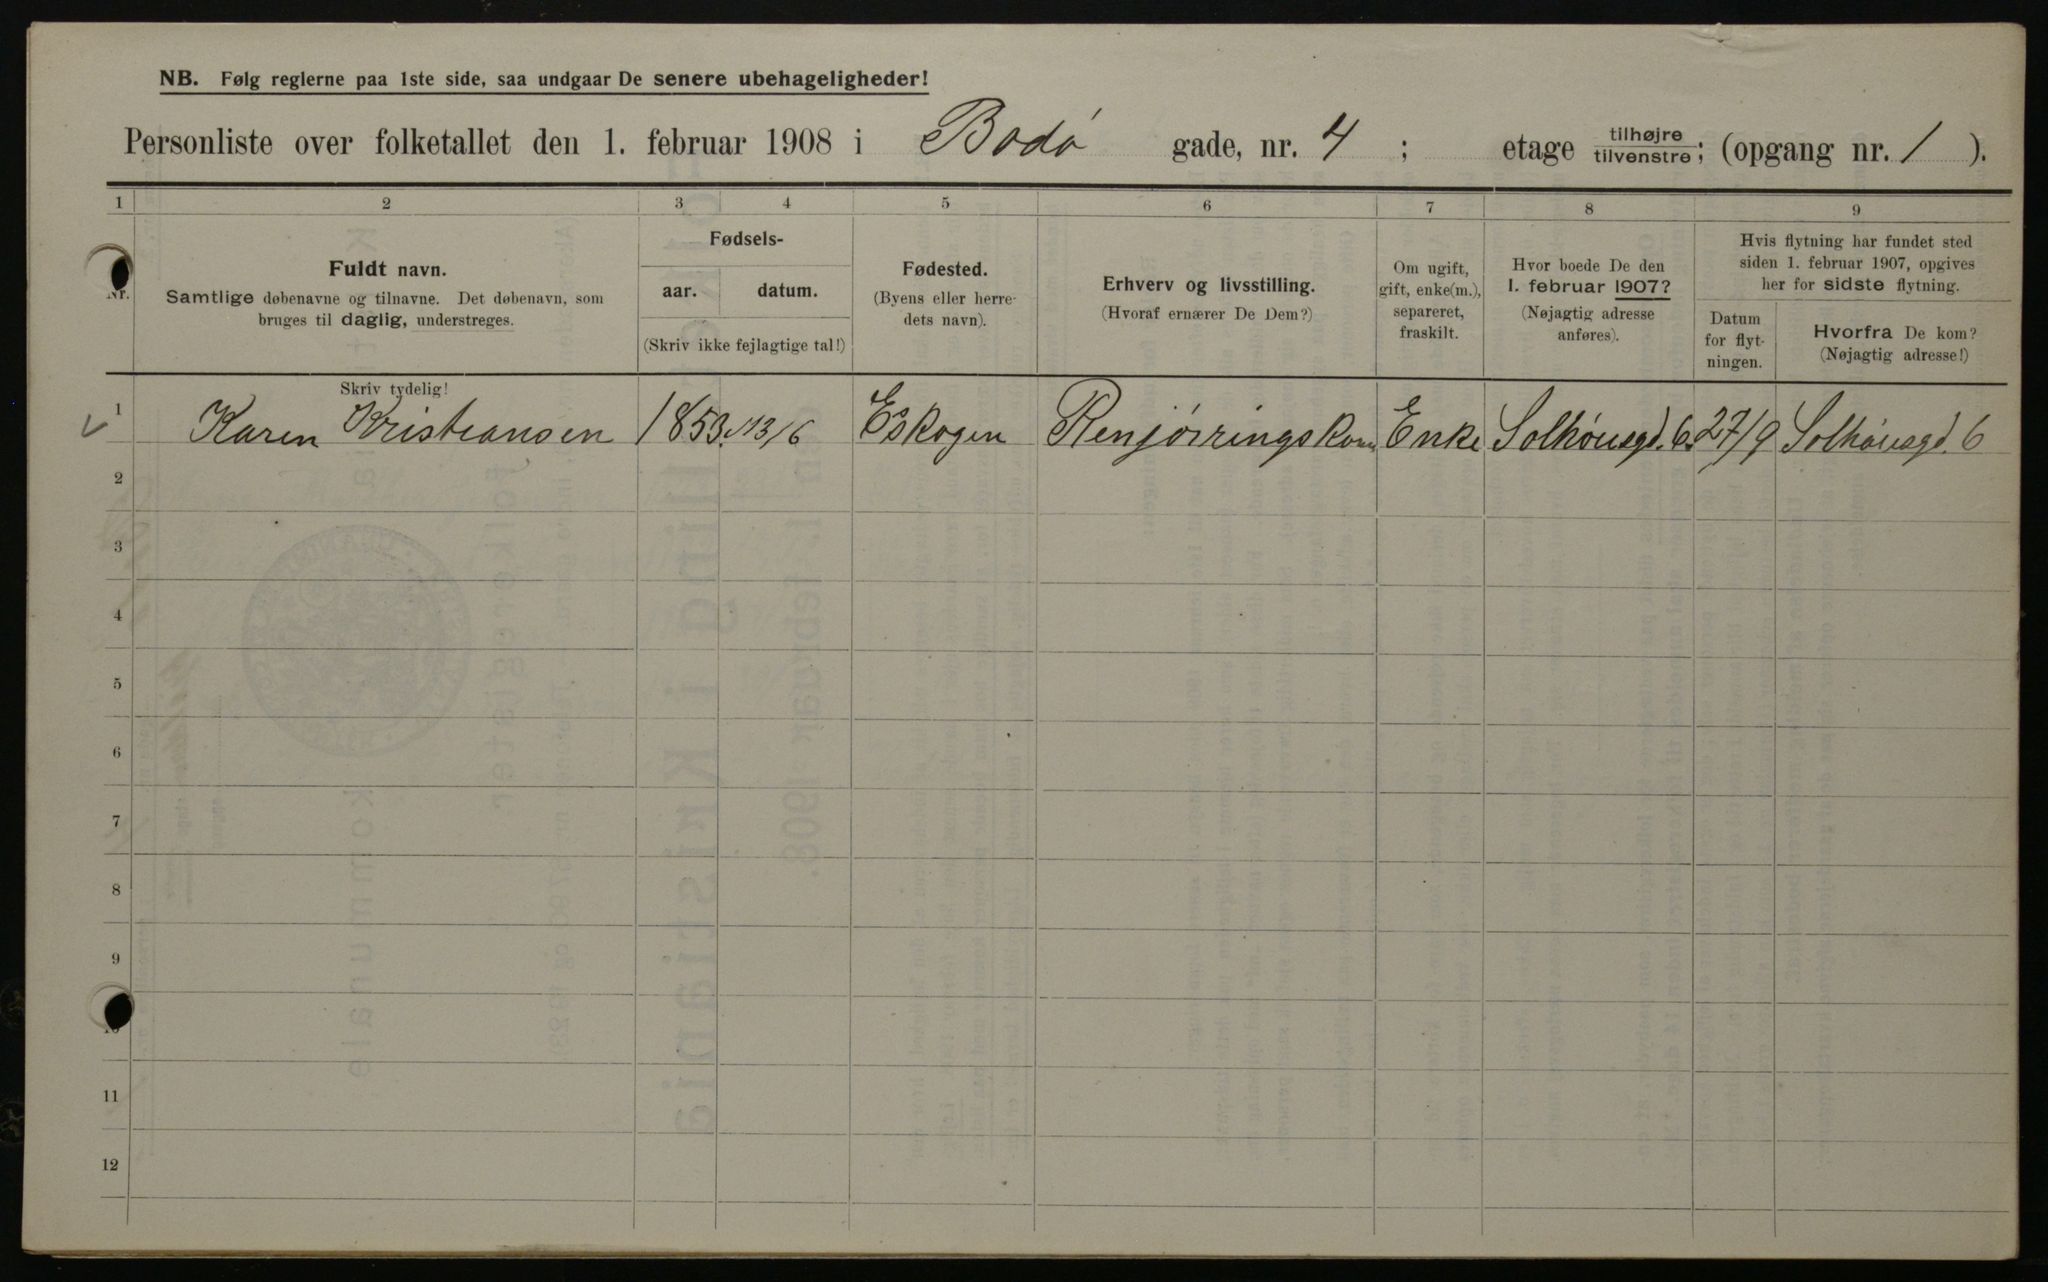 NB. Følg reglerne paa 1ste side, saa undgaar De senere ubehageligheder!
Personliste over folketallet den 1. februar 1908 i Bodø gade, nr. 4 ; etage tilhøjre tilvenstre; (opgang nr. 1 ).
1 2 3 4 5 6 7 8 9
Nr.
Fuldt navn.
Samtlige døbenavne og tilnavne. Det døbenavn, som
bruges til daglig, understreges.
Fødsels-
aar. datum.
(Skriv ikke fejlagtige tal!)
Fødested.
(Byens eller herre-
dets navn).
Erhverv og livsstilling.
(Hvoraf ernærer De Dem?)
Om ugift,
gift, enke(m.),
separeret,
fraskilt.
Hvor boede De den
1. februar 1907?
(Nøjagtig adresse
anføres).
Hvis flytning har fundet sted
siden 1. februar 1907, opgives
her for sidste flytning.
Datum
for flyt-
ningen.
Hvorfra De kom?
(Nøjagtig adresse!)
Skriv tydelig!
1 Karen Kristiansen 1853 13/6 Eskogen Renjøiringskone Enke Solhøusgd. 6 27/9 Solhøusgd. 6
2
3
4
5
6
7
8
9
10
11
12